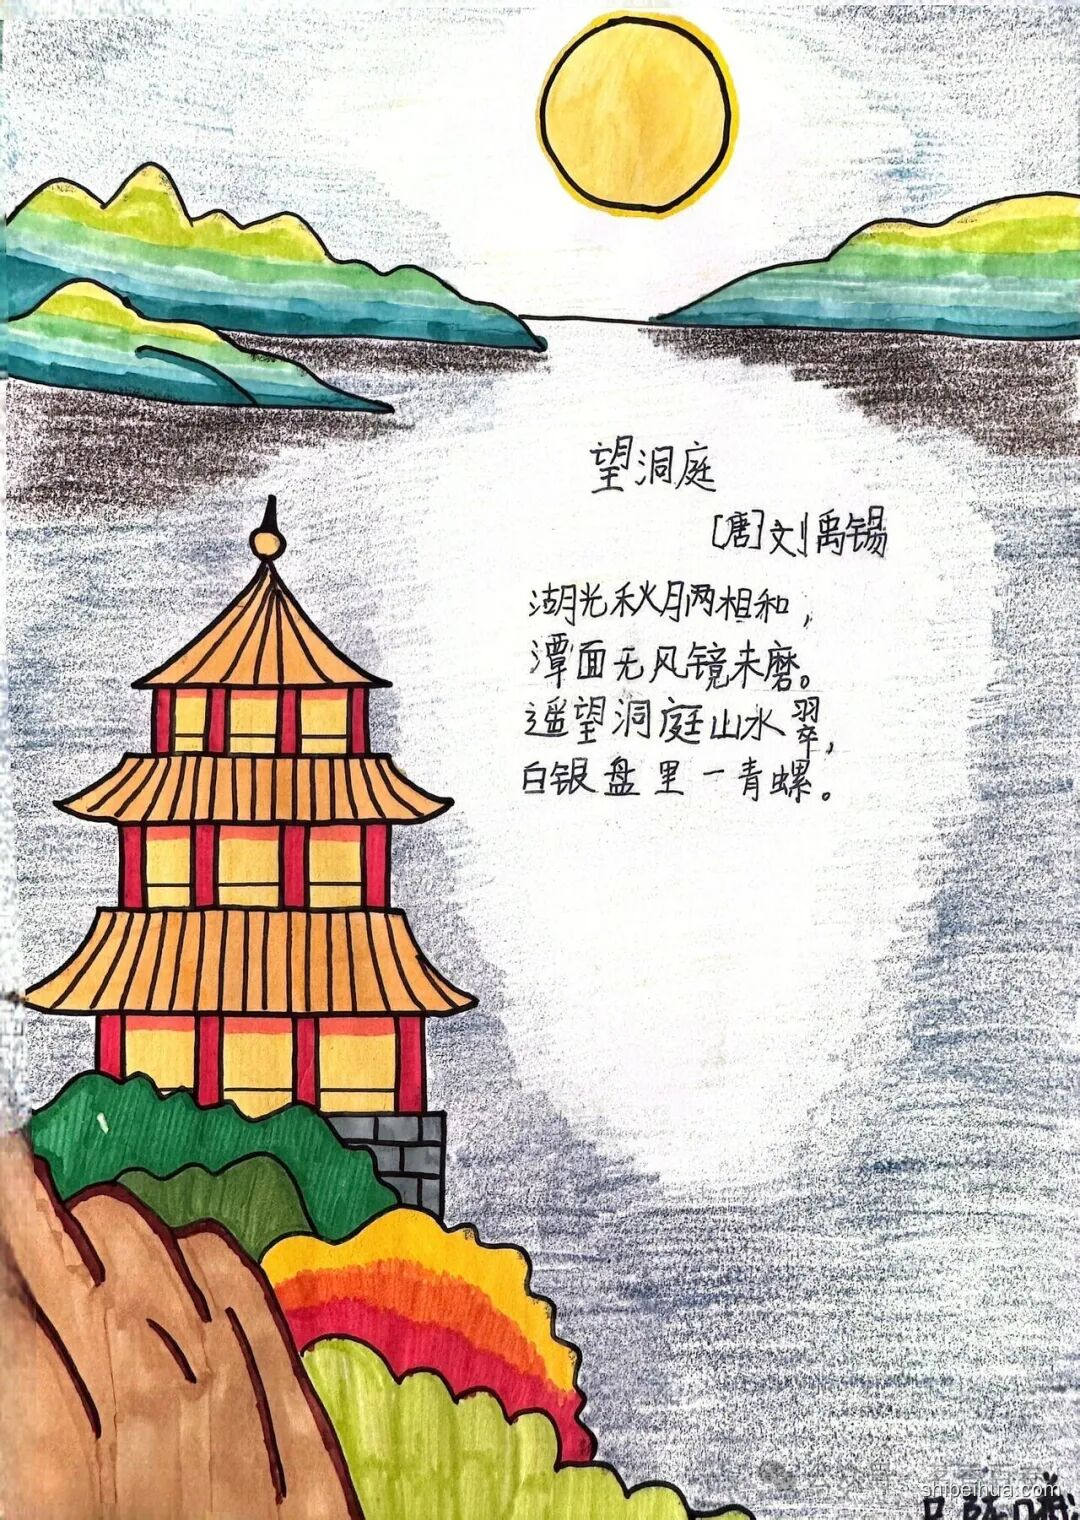 望洞庭
[唐]刘禹锡
湖光秋月两相和，
潭面无风镜未磨。
遥望洞庭山水翠，
白银盘里一青螺。
shibeihua.com